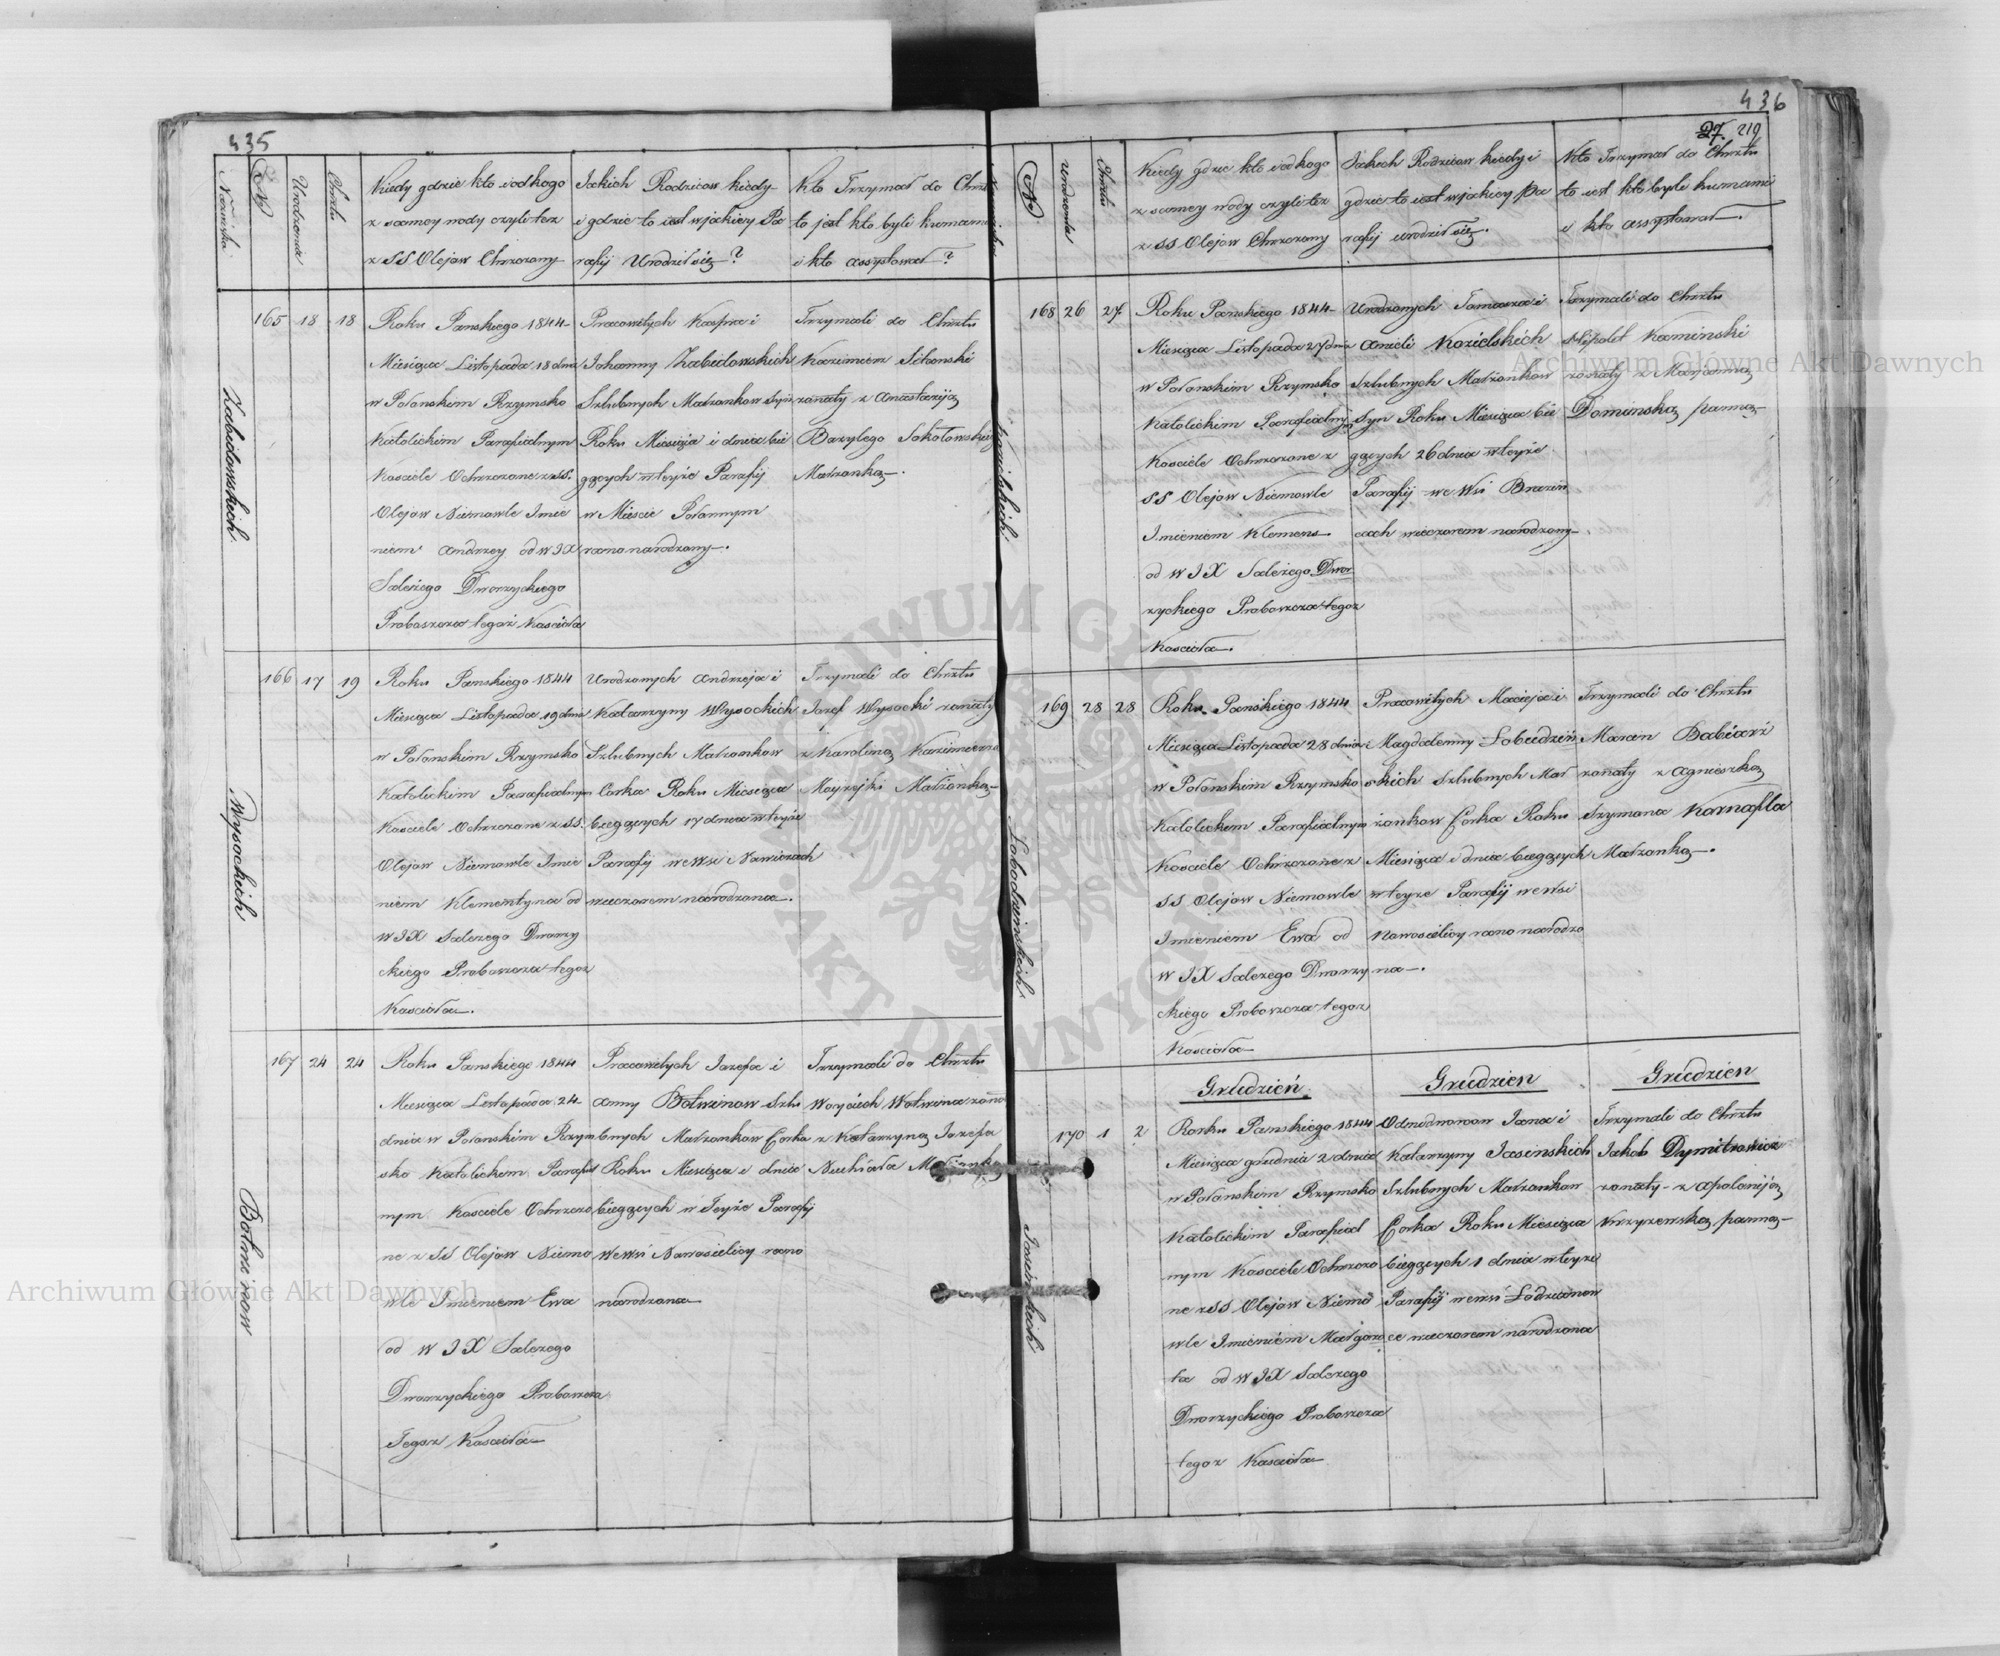 435
Nazwisko
N
Urodzenia
Chrztu
Kiedy gdzie kto i od kogo
z samey wody czyli też
z SS Olejow Chrzczony
Jakich Rodzicow kiedy
i gdzie to iest w jakiey Pa
rafij Urodził się?
Kto Trzymał do Chrztu
to jest kto byli kumami
i kto assystował?
Zabidowskich
165 18 18
Roku Panskiego 1844
Miesiąca Listopada 18 dnia
w Połanskim Rzymsko
Katolickim Parafialnym
Kosciele Ochrzczone z SS.
Olejow Niemowle Imie
niem Andrzey od W JX
Salezego Dworzyckiego
Proboszcza tegoż Koscioła
Pracowitych Kaspra i
Johanny Zabidowskich
Szlubnych Małżonkow Syn
Roku Miesiąca i dnia bie
gących w teyże Parafij
w Miescie Połonnym
rano narodzony.
Trzymali do Chrztu
Kazimierz Sitanski
żonaty z Anastazyą
Bazylego Sokołowskiego
Małżonką.
Wysockich
166 17 19
Roku Panskiego 1844
Miesiąca Listopada 19 dnia
w Połanskim Rzymsko
Katolickim Parafialnym
Kosciele Ochrzczone z SS.
Olejow Niemowle Imie
niem Klementyna od
W JX Salezego Dworzy
ckiego Proboszcza tegoz
Koscioła.
Urodzonych Andrzeja i
Katarzyny Wysockich
Szlubnych Małzonkow
Corka Roku Miesiąca
biegących 17 dnia w teyże
Parafij we wsi Nowiczach
wieczorem narodzona.
Trzymali do Chrztu
Jozef Wysocki zonaty
z Karoliną Kazimierza
Mayzejki Małżonką
Botwinow
167 24 24
Roku Panskiego 1844
Miesiąca Listopada 24
dnia w Połanskim Rzym
sko Katolickim Parafial
nym Kosciele Ochrzczo
ne z SS Olejow Niemo
wle Imieniem Ewa
od W JX Salezego
Dworzyckiego Proboszcza
Tegoz Koscioła
Pracowitych Jozefa i
Anny Botwinow Szlu
bnych Małzonkow Corka
Roku Miesiąca i dnia
biegących w Teyże Parafij
we wsi Nowosielicy rano
narodzona
Trzymali do Chrztu
Woyciech Wotwina zona
z Katarzyną Jozefa
Małżonką
436
27. 219
N
Urodzenia
Chrztu
Kiedy gdzie kto i od kogo
z samey wody czyli tez
z SS Olejow Chrzczony
Jakich Rodzicow kiedy i
gdzie to iest w jakiey Pa
rafij urodził się.
Kto Trzymał do Chrztu
to iest kto byli kumami
i kto assystował.
Kozielskich
168 26 27
Roku Panskiego 1844
Miesiąca Listopada 27 dnia
w Połanskim Rzymsko
Katolickim Parafialnym
Kosciele Ochrzczone z
SS Olejow Niemowle
Imieniem Klemens
od W JX Salezego Dwor
zyckiego Proboszcza tegoz
Koscioła.
Urodzonych Tomasza i
Anieli Kozielskich
Szlubnych Małżonkow
Syn Roku Miesiąca bie
gących 26 dnia w teyże
Parafij we Wsi Brazin
cach wieczorem narodzony
Trzymali do Chrztu
Hipolit Kaminski
zonaty z Marjanną
Dominską panną
Łobodzinskich
169 28 28
Roku Panskiego 1844
Miesiąca Listopada 28 dnia
w Połanskim Rzymsko
Katolickim Parafialnym
Kosciele Ochrzczone z
SS Olejow Niemowle
Imieniem Ewa od
W JX Salezego Dworzy
ckiego Proboszcza tegoz
Koscioła
Pracowitych Macieja i
Magdaleny Łobudziń
skich Szlubnych Mał
żonkow Corka Roku
Miesiąca i dnia biegących
w teyże Parafij we wsi
Nowosielicy rano narodzo
na.
Trzymali do Chrztu
Marcin Babiarż
zonaty z Agnieszką
Szymana Karnafla
Małzonką.
Grudzień.
Grudzien
Grudzien
Jasinskich
170 1 2
Roku Panskiego 1844
Miesiąca grudnia 2 dnia
w Połanskim Rzymsko
Katolickim Parafial
nym Kosciele Ochrzczo
ne z SS Olejow Niemo
wle Imieniem Małgorza
ta od W JX Salezego
Dworzyckiego Proboszcza
tegoz Koscioła
Odnodworcow Jana i
Katarzyny Jasinskich
Szlubnych Małzonkow
Corka Roku Miesiąca
biegących 1 dnia w teyże
Parafij we wsi Łodzianow
ce wieczorem narodzona
Trzymali do Chrztu
Jakob Dymitrowicz
zonaty z Apolonijją
Krzyzewską panną
Archiwum Główne Akt Dawnych
Archiwum Główne Akt Dawnych
ARCHIWUM GŁÓWNE AKT DAWNYCH